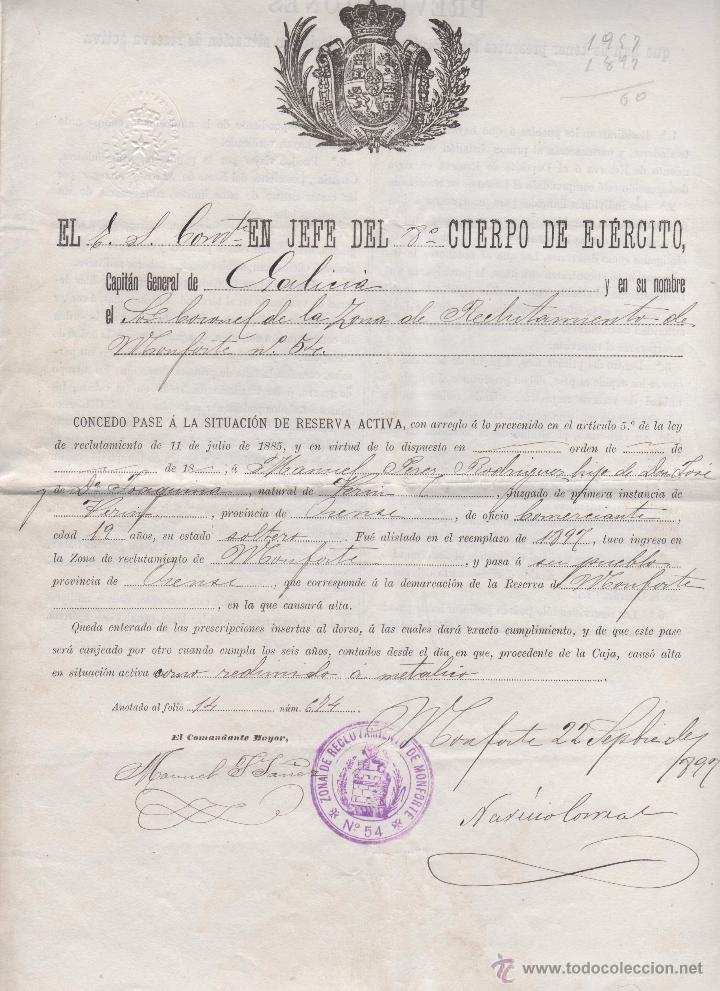 1957
1897
60
EL E. S. Comte EN JEFE DEL 8º CUERPO DE EJÉRCITO,
Capitán General de Galicia y en su nombre
el Sor Coronel de la Zona de Reclutamiento de
Monforte nº 54.
CONCEDO PASE Á LA SITUACIÓN DE RESERVA ACTIVA, con arreglo á lo prevenido en el artículo 5.º de la ley
de reclutamiento de 11 de julio de 1885, y en virtud de lo dispuesto en orden de de
de 18 á Manuel Perez Rodriguez hijo de Don José
y de Dª Joaquina, natural de Verin, Juzgado de primera instancia de
Verin, provincia de Orense, de oficio Comerciante,
edad 19 años, su estado soltero. Fué alistado en el reemplazo de 1897, tuvo ingreso
en la Zona de reclutamiento de Monforte, y pasa á su pueblo
provincia de Orense, que corresponde á la demarcación de la Reserva de Monforte
, en la que causará alta.
Queda enterado de las prescripciones insertas al dorso, á las cuales dará exacto cumplimiento, y de que este pase
será canjeado por otro cuando cumpla los seis años, contados desde el día en que, procedente de la Caja, causó alta
en situación activa como redimido á metalico
Anotado al folio 14 núm. 674
Monforte 22 Septbre de 1897
El Comandante Mayor,
Manuel
ZONA DE RECLUTAMIENTO DE MONFORTE
Nº 54
Narciso
www.todocoleccion.net